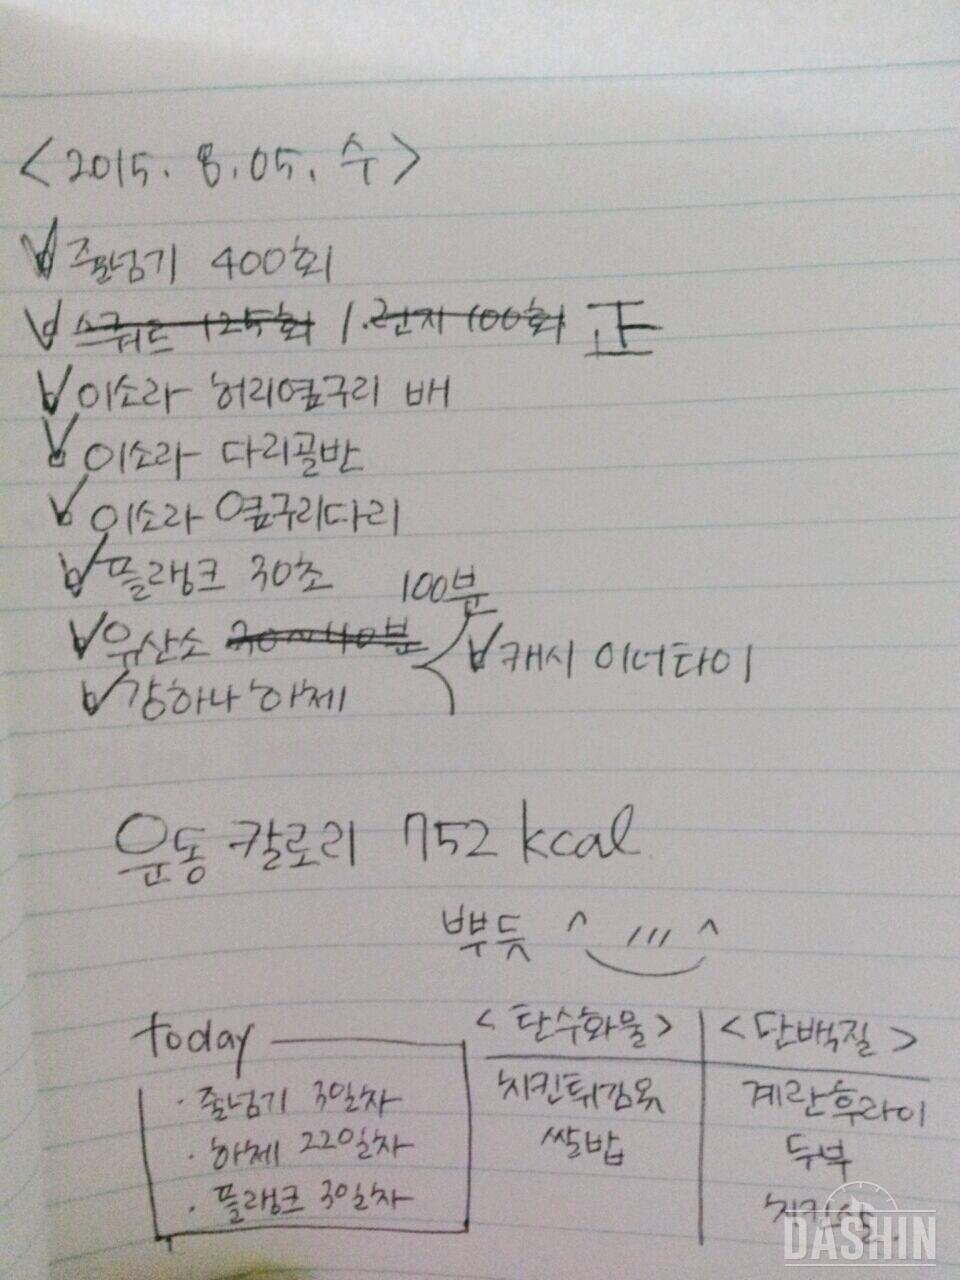 <2015. 8. 05. 수>
줄넘기 400회
스쿼트 125회 / 런지 100회 正
이소라 허리옆구리 배
이소라 다리골반
이소라 옆구리다리
플랭크 30초
100분
유산소 30~40분
캐시 이너타이
강하나 하체
운동 칼로리 752 kcal
뿌듯 ^ /// ^
today
· 줄넘기 3일차
· 하체 22일차
· 플랭크 3일차
<탄수화물>
치킨튀김옷
쌀밥
<단백질>
계란후라이
두부
치킨살
DASHIN